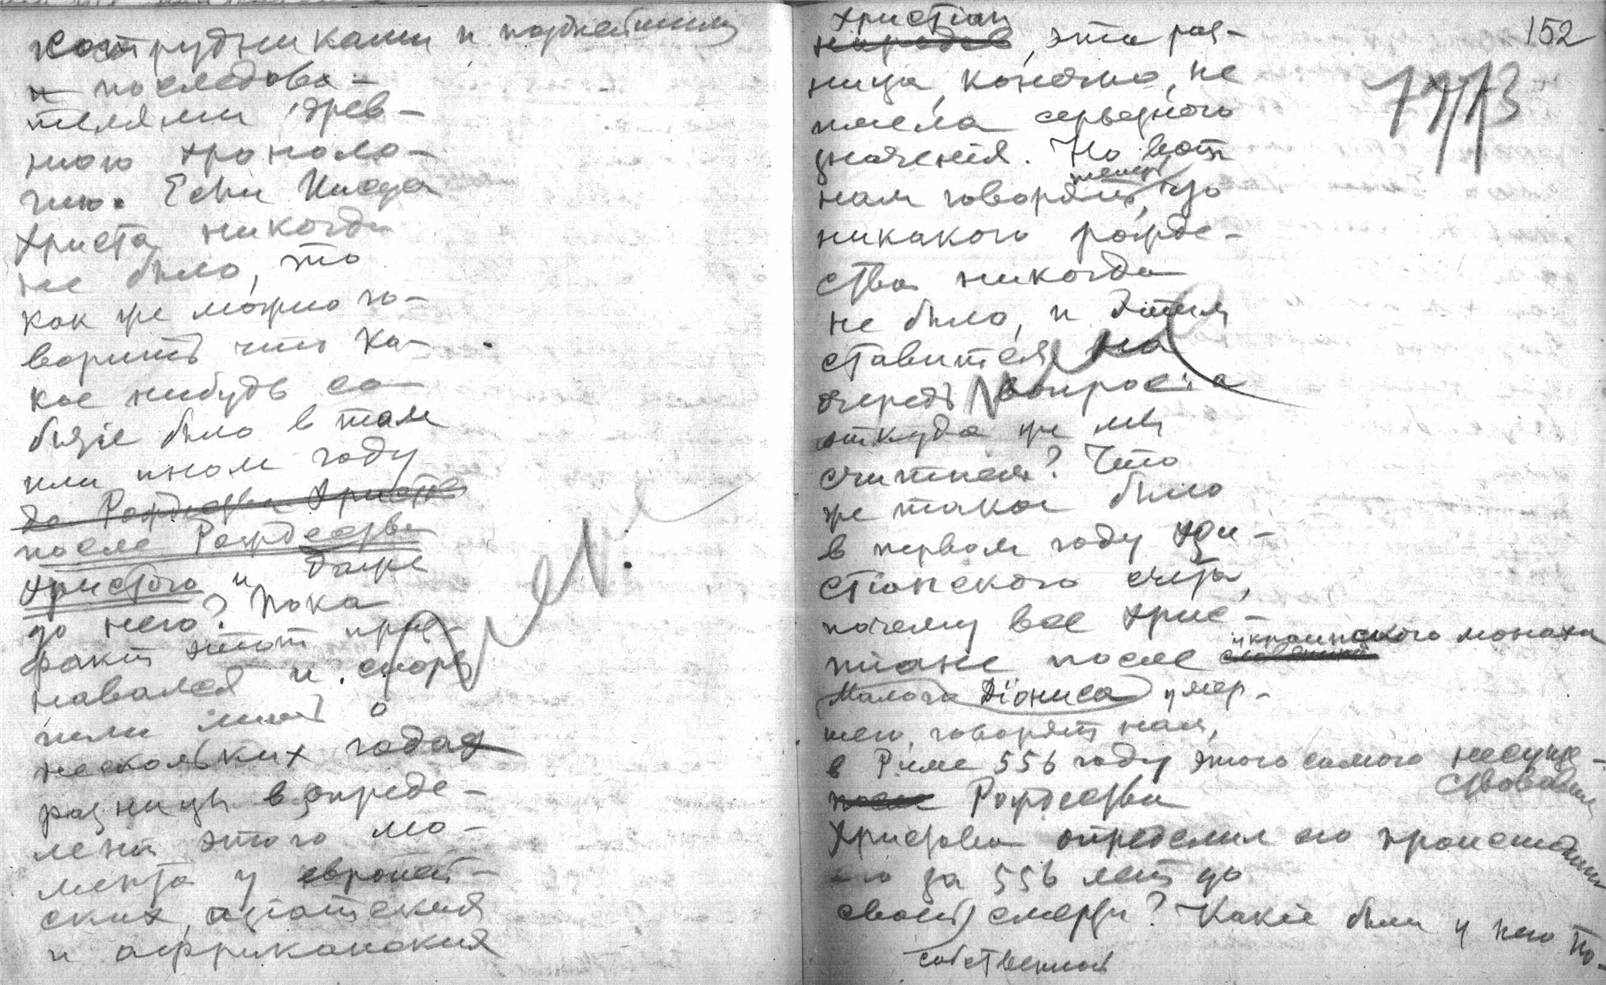 сотрудниками и
и последова-
телями древ-
нюю хроноло-
гию. Если Иисуса
Христа никогда
не было, то
как же можно го-
ворить что ка-
кое нибудь со-
бытіе было в том
или ином году
до Рождества Христова
после Рождества
Христого и даже
до него? Пока
факт этот приз-
навался и спори
или лишь о
нескольких годах
разницы в опреде-
лении этого мо-
мента у европей-
ских, азіатских
и африканских
христіан
народов, эта раз-
ница, конечно, не
имела серьезного
значенія. Но вот
теперь
нам говорят, что
никакого рожде-
ства никогда
не было, и этим
ставится на
очередь вопрос: а
откуда же мы
считаем? Что
же такое было
в первом году хри-
стіанского счета,
почему все хрис-
тіане после украинского монаха
Малого Діониса умер-
шего, говорят нам,
в Риме 556 году этого самого несуще-
ствовавшаго
после Рождества
Христова определил его происшедшим
его за 556 лет до
своей смерти? Какіе были у него по-
собственной
152